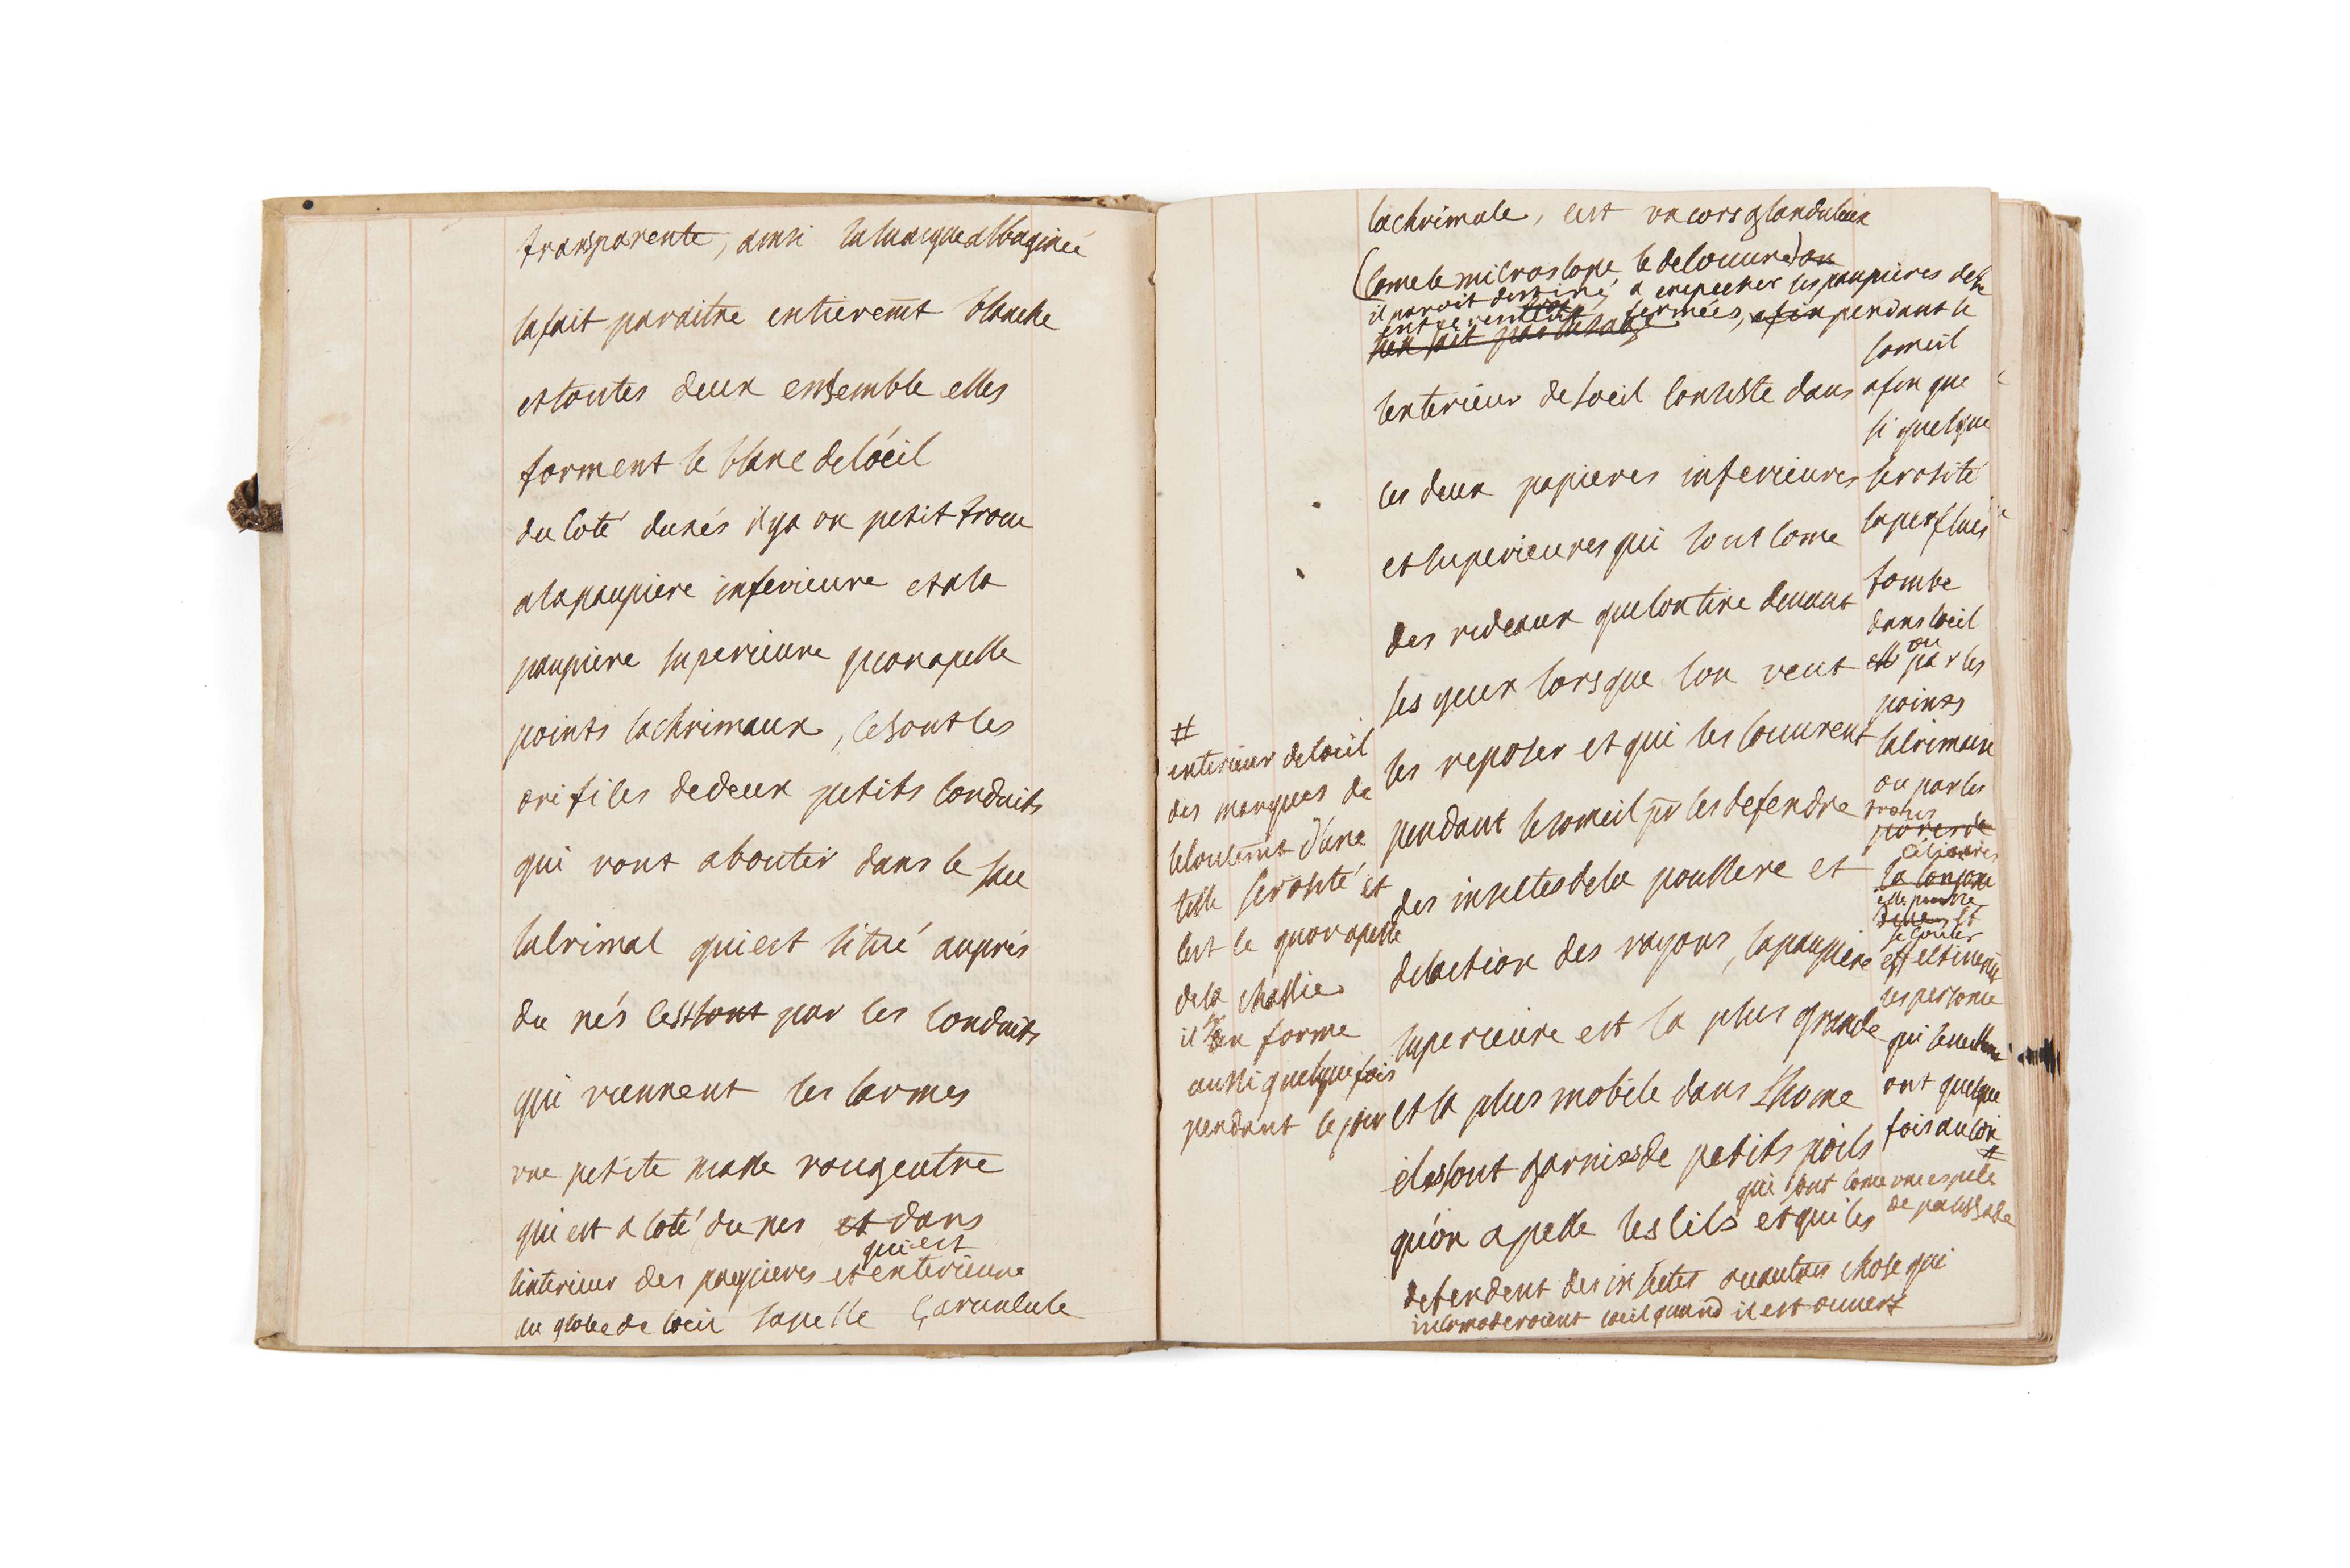 transparente, ainsi la tunique albuginée
la fait paraitre entieremt blanche
et toutes deux ensemble elles
forment le blanc de loéil
du coté du nés il ya un petit trou
a la paupiere inferieure et a la
paupiere superieure quon apelle
points lachrimaux, ce sont les
orifices de deux petits conduits
qui vont aboutir dans le sac
lacrimal qui est situé auprés
du nés cest sont par ces conduits
qui viennent les larmes
une petite masse rougeatre
qui est a coté du nes et dans
qui est
linterieur des paupieres et enterieure
du globe de loeil sapelle Caruncule
lachrimale, cest un cors glanduleux
(come le microscope le decouvre) ou
il paroit destiné a empecher les paupieres de
entierement fermées, afin pendant le
lenterieur de loeil consiste dans
les deux papieres inferieures
et superieures qui sont come
des rideaux que lon tire devant
les yeux lorsque lon veut
les reposer et qui les couvrent
pendant le someil pr les defendre
des insectes de la poussiere et
de laction des rayons, la paupiere
superieure est la plus grande
et la plus mobile dans l'home
elles sont garnies de petits poils
qui sont come une espece
de palissade
qu'on apelle les cils et qui les
defendent des insectes ou autres chose qui
incomoderoient loeil quand il est ouvert
someil
afin que
si quelque
serosité
superflues
tombe
dans loeil
ou
par les
points
lacrimaux
ou par les
trous
pores de
ciliaires
la
se couler
les persone
qui
ont quelque
fois au coin
#
#
enterieur de loeil
des marques de
lecoulemt d'une
telle serosité et
cest ce quon apelle
de la chassie
il sen forme
aussi quelque fois
pendant le jour